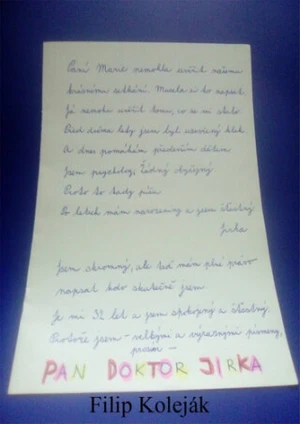 Paní Marie nemohla uvěřit našemu
krásnému setkání. Musela si to napsat.
Já nemohu uvěřit tomu, co se mi stalo.
Před dvěma lety jsem byl uzavřený kluk
A dnes pomáhám především dětem
Jsem psycholog, žádný obyčejný
Proto to tady píši
Po letech mám narozeniny a jsem šťastný
Jirka
Jsem skromný, ale teď mám plné právo
napsat kdo skutečně jsem
Je mi 32 let a jsem spokojený a šťastný
Protože jsem - velkými a výraznými písmeny,
prosím -
PAN DOKTOR JIRKA
Filip Koleják